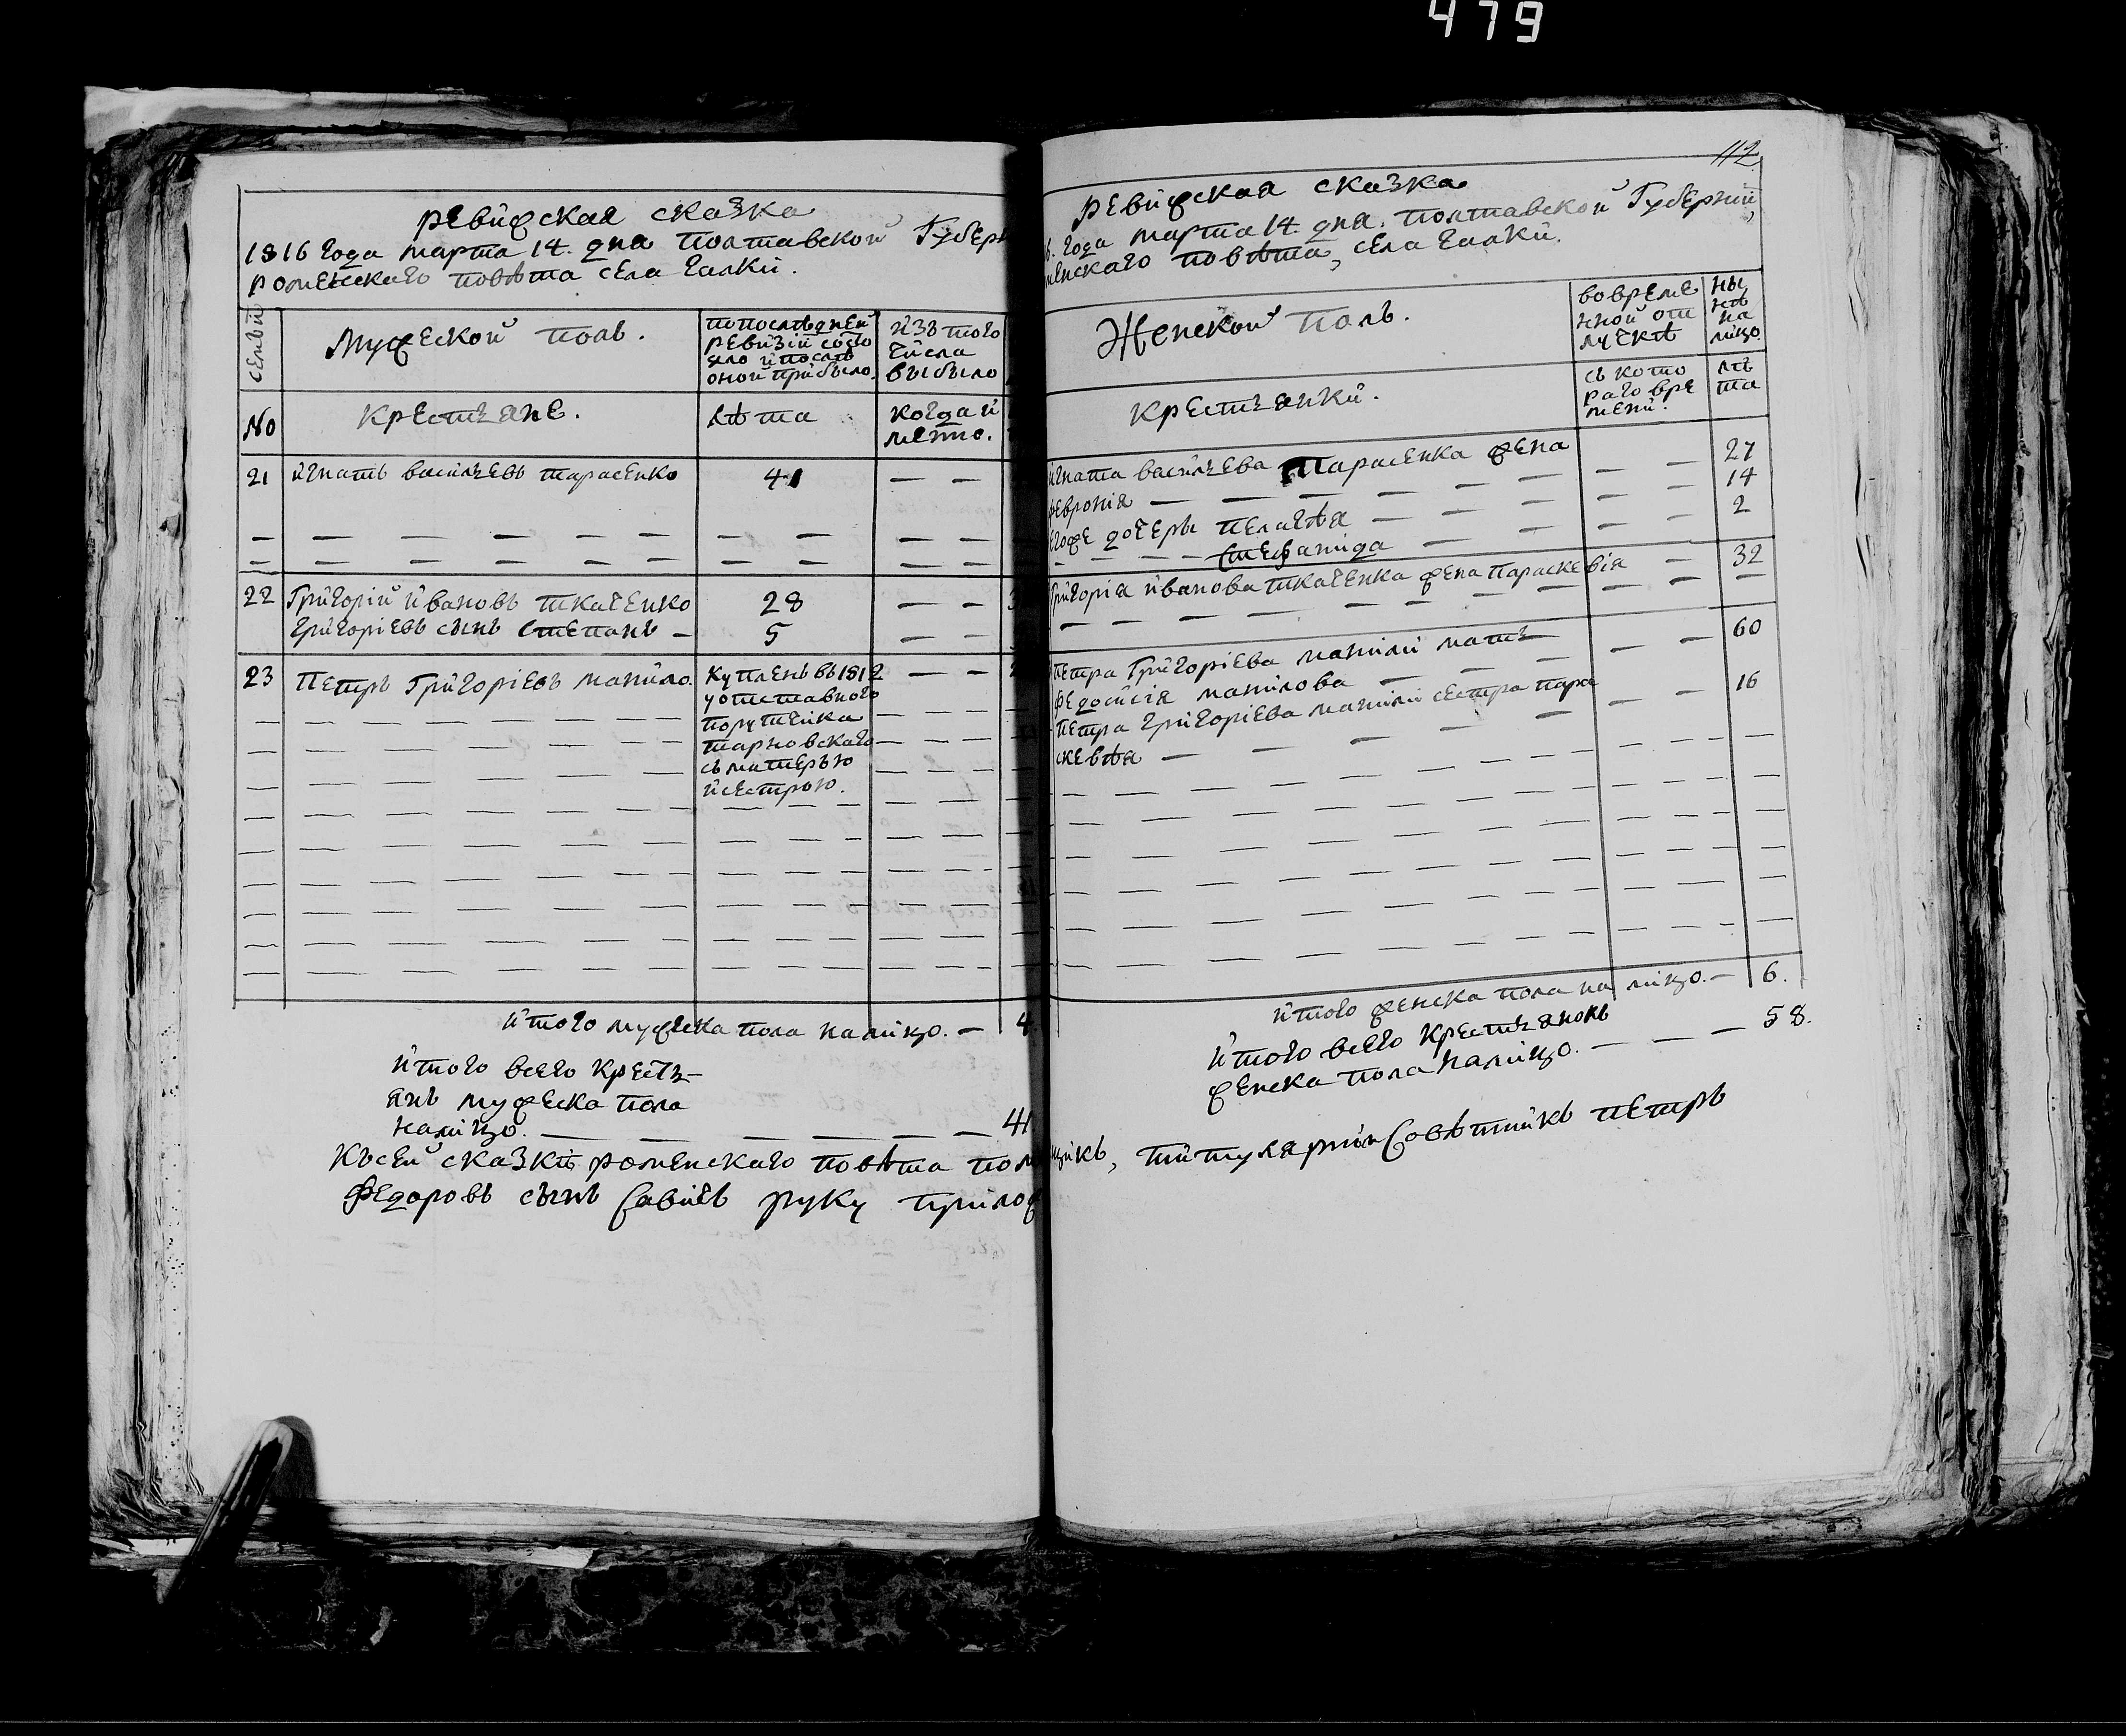 479
Ревижская сказка
1816 года марта 14. дня Полтавской Губерн
Роменскаго повѣта села Галки.
семьи
Мужеской полъ.
попослѣдней
ревизіи состо
яло и послѣ
оной прибыло.
изъ того
числа
выбыло
No
Крестьяне.
лѣта
когда и
менно.
21 Игнатъ Васильевъ Тарасенко 41
22 Григорий Ивановъ Ткаченко 28
Григоріевъ сынъ Степанъ 5
23 Петръ Григоріевъ Манило. Купленъ въ 1812
у отставного
порутчика
Тарновскаго
съ матерью
и сестрою.
Итого мужеска пола налицо. — 4
Итого всего Кресть-
янъ мужеска пола
налицо. — 41
Къ сей сказкѣ роменскаго повѣта пом
Федоровъ сынъ Савичъ руку прилож
112
Ревижская сказка
6. года марта 14. дня. Полтавской Губерний,
менскаго повѣта, села Галки.
Женской полъ.
вовреме
нной от
лучкѣ
ны
нѣ
на
лицо
Крестьянки.
съ кото
раго вре
мени.
лѣ
та
Игната Васильева Тарасенка жена 27
Февронія 14
Егоже дочери Пелагѣя 2
Стефанида
Григорія Иванова Ткаченка жена Параскевія 32
Петра Григоріева Манили мать 60
Федосия Манилова
Петра Григоріева Манили сестра Пара 16
скевѣя
Итого женска пола налицо. — 6.
Итого всего Крестьянокъ
женска пола налицо. — 58.
щикъ, титулярный Совѣтникъ Петръ